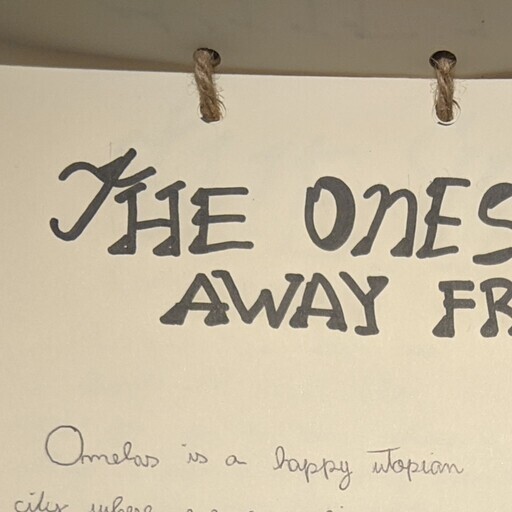 THE ONES
AWAY FR
Omelas is a happy utopian
city where